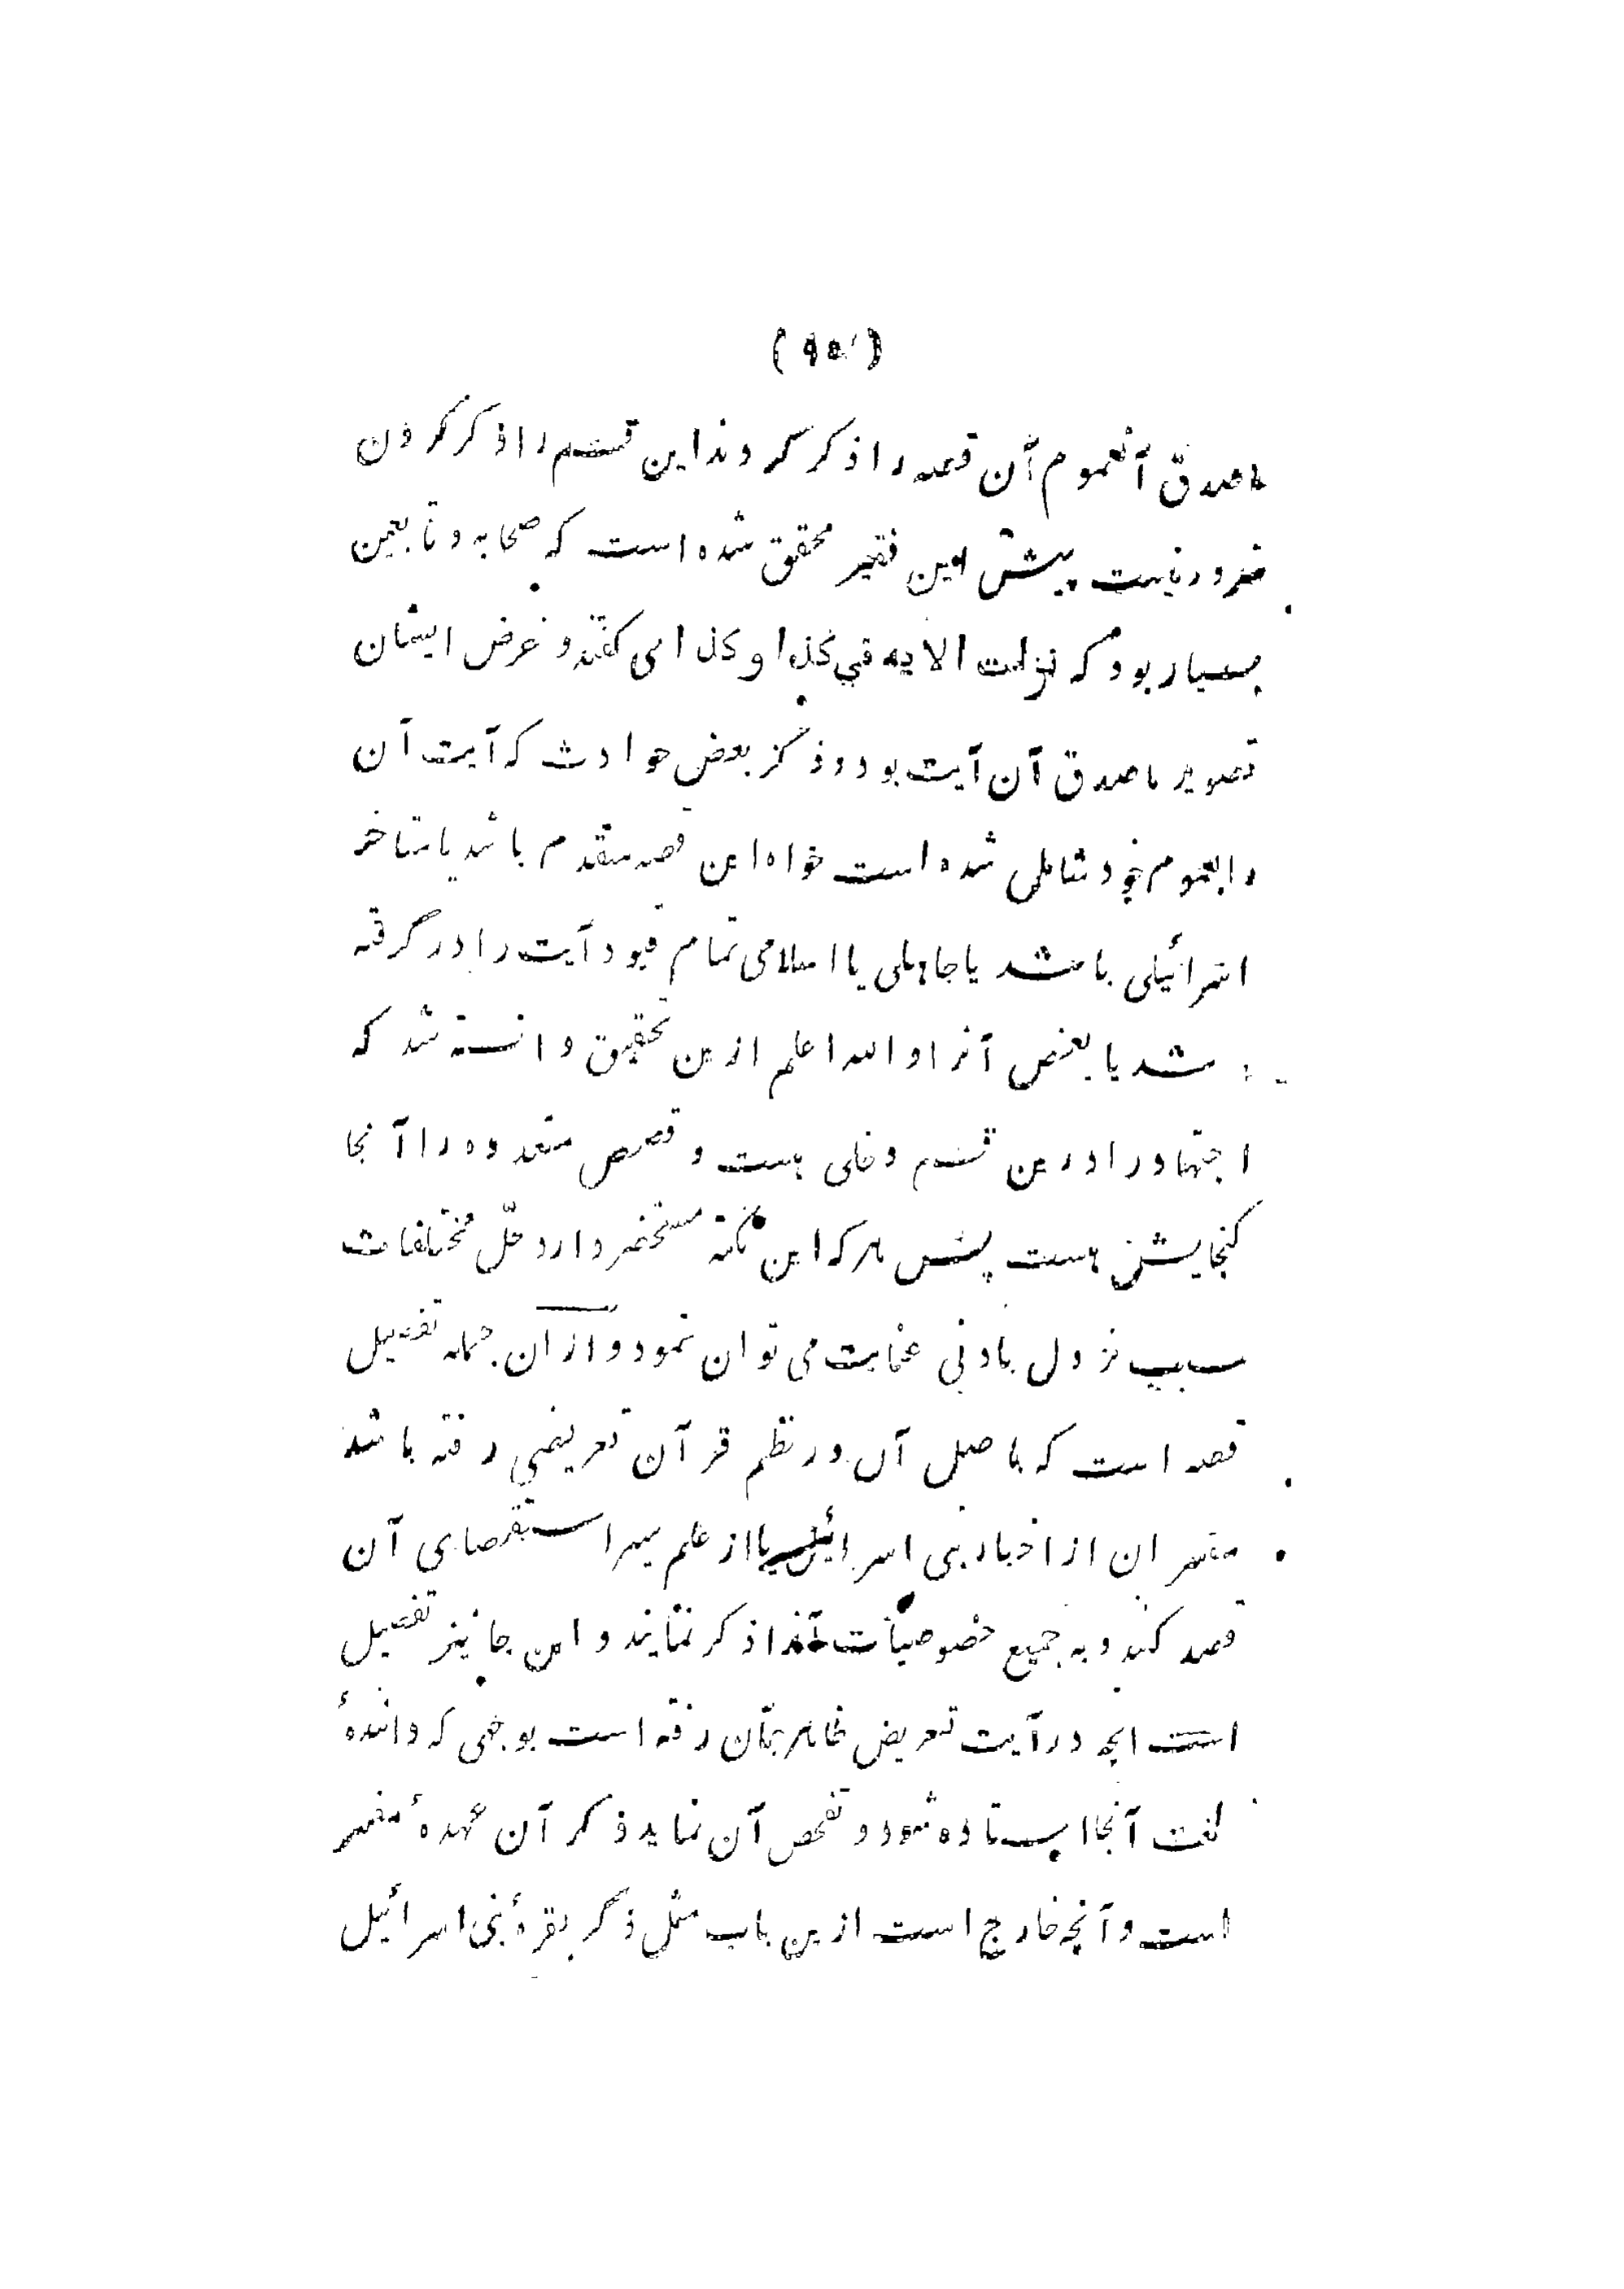 (٩٥)
ماصدق آنعموم آن قصه را ذکر کردند این قسم را ذکر کردن
ضرور نیست پیش این فقیر محقق شده است که صحابه و تابعین
بسیار بود که نزلت الایه في کذا و کذا می گفتند و غرض ایشان
تصویر ماصدق آن آیت بود و ذکر بعض حوادث که آیت آن
را بعموم خود شامل شده است خواه این قصه متقدم باشد یا متاخر
اسرائیلی باشد یا جاهلی یا اسلامی تمام قیود آیت را در گرفته
باشد یا بعض آنرا و الله اعلم ازین تحقیق دانسته شد که
اجتهاد را درین قسم دخلی هست و قصص متعدده را آنجا
گنجایش هست پس هر که این نکته مستحضر دارد حلّ مختلفات
سبب نزول بادنی عنایت می توان نمود و از آن جمله تفصیل
قصه است که باصل آن در نظم قرآن تعریضي رفته باشد
مفسران از اخبار بنی اسرائیل یا از علم سیر استقصای آن
قصه کنند و به جمیع خصوصیات آنرا ذکر نمایند و این جا نیز تفصیل
است انچه در آیت تعریض ظاهر بآن رفته است بوجهی که دانندۀ
لغت آنجا ایستاده شود و تفحص آن نماید ذکر آن عهدۀ مفسر
است و آنچه خارج است ازین باب مثل ذکر بقرۀ بنی اسرائیل